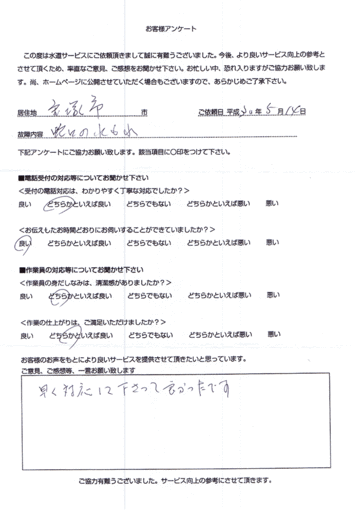 お客様アンケート
この度は水道サービスにご依頼頂きまして誠に有難うございました。今後、より良いサービス向上の参考と
させて頂くため、率直なご意見、ご感想をお聞かせ下さい。お忙しい中、恐れ入りますがご協力お願い致しま
す。尚、ホームページに公開させていただく場合もございますので、あらかじめご了承下さい。
居住地 宝塚市 市 ご依頼日 平成30年5月14日
故障内容 蛇口の水もれ
下記アンケートにご協力お願い致します。該当項目に〇印をつけて下さい。
■電話受付の対応等についてお聞かせ下さい
<受付の電話対応は、わかりやすく丁寧な対応でしたか？>
良い どちらかといえば良い どちらでもない どちらかといえば悪い 悪い
<お伝えしたお時間どおりにお伺いすることができていましたか？>
良い どちらかといえば良い どちらでもない どちらかといえば悪い 悪い
■作業員の対応等についてお聞かせ下さい
<作業員の身だしなみは、清潔感がありましたか？>
良い どちらかといえば良い どちらでもない どちらかといえば悪い 悪い
<作業の仕上がりは、ご満足いただけましたか？>
良い どちらかといえば良い どちらでもない どちらかといえば悪い 悪い
お客様のお声をもとにより良いサービスを提供させて頂きたいと思っています。
ご意見、ご感想等、一言お願い致します
早く対応して下さって良かったです
ご協力有難うございました。サービス向上の参考にさせて頂きます。